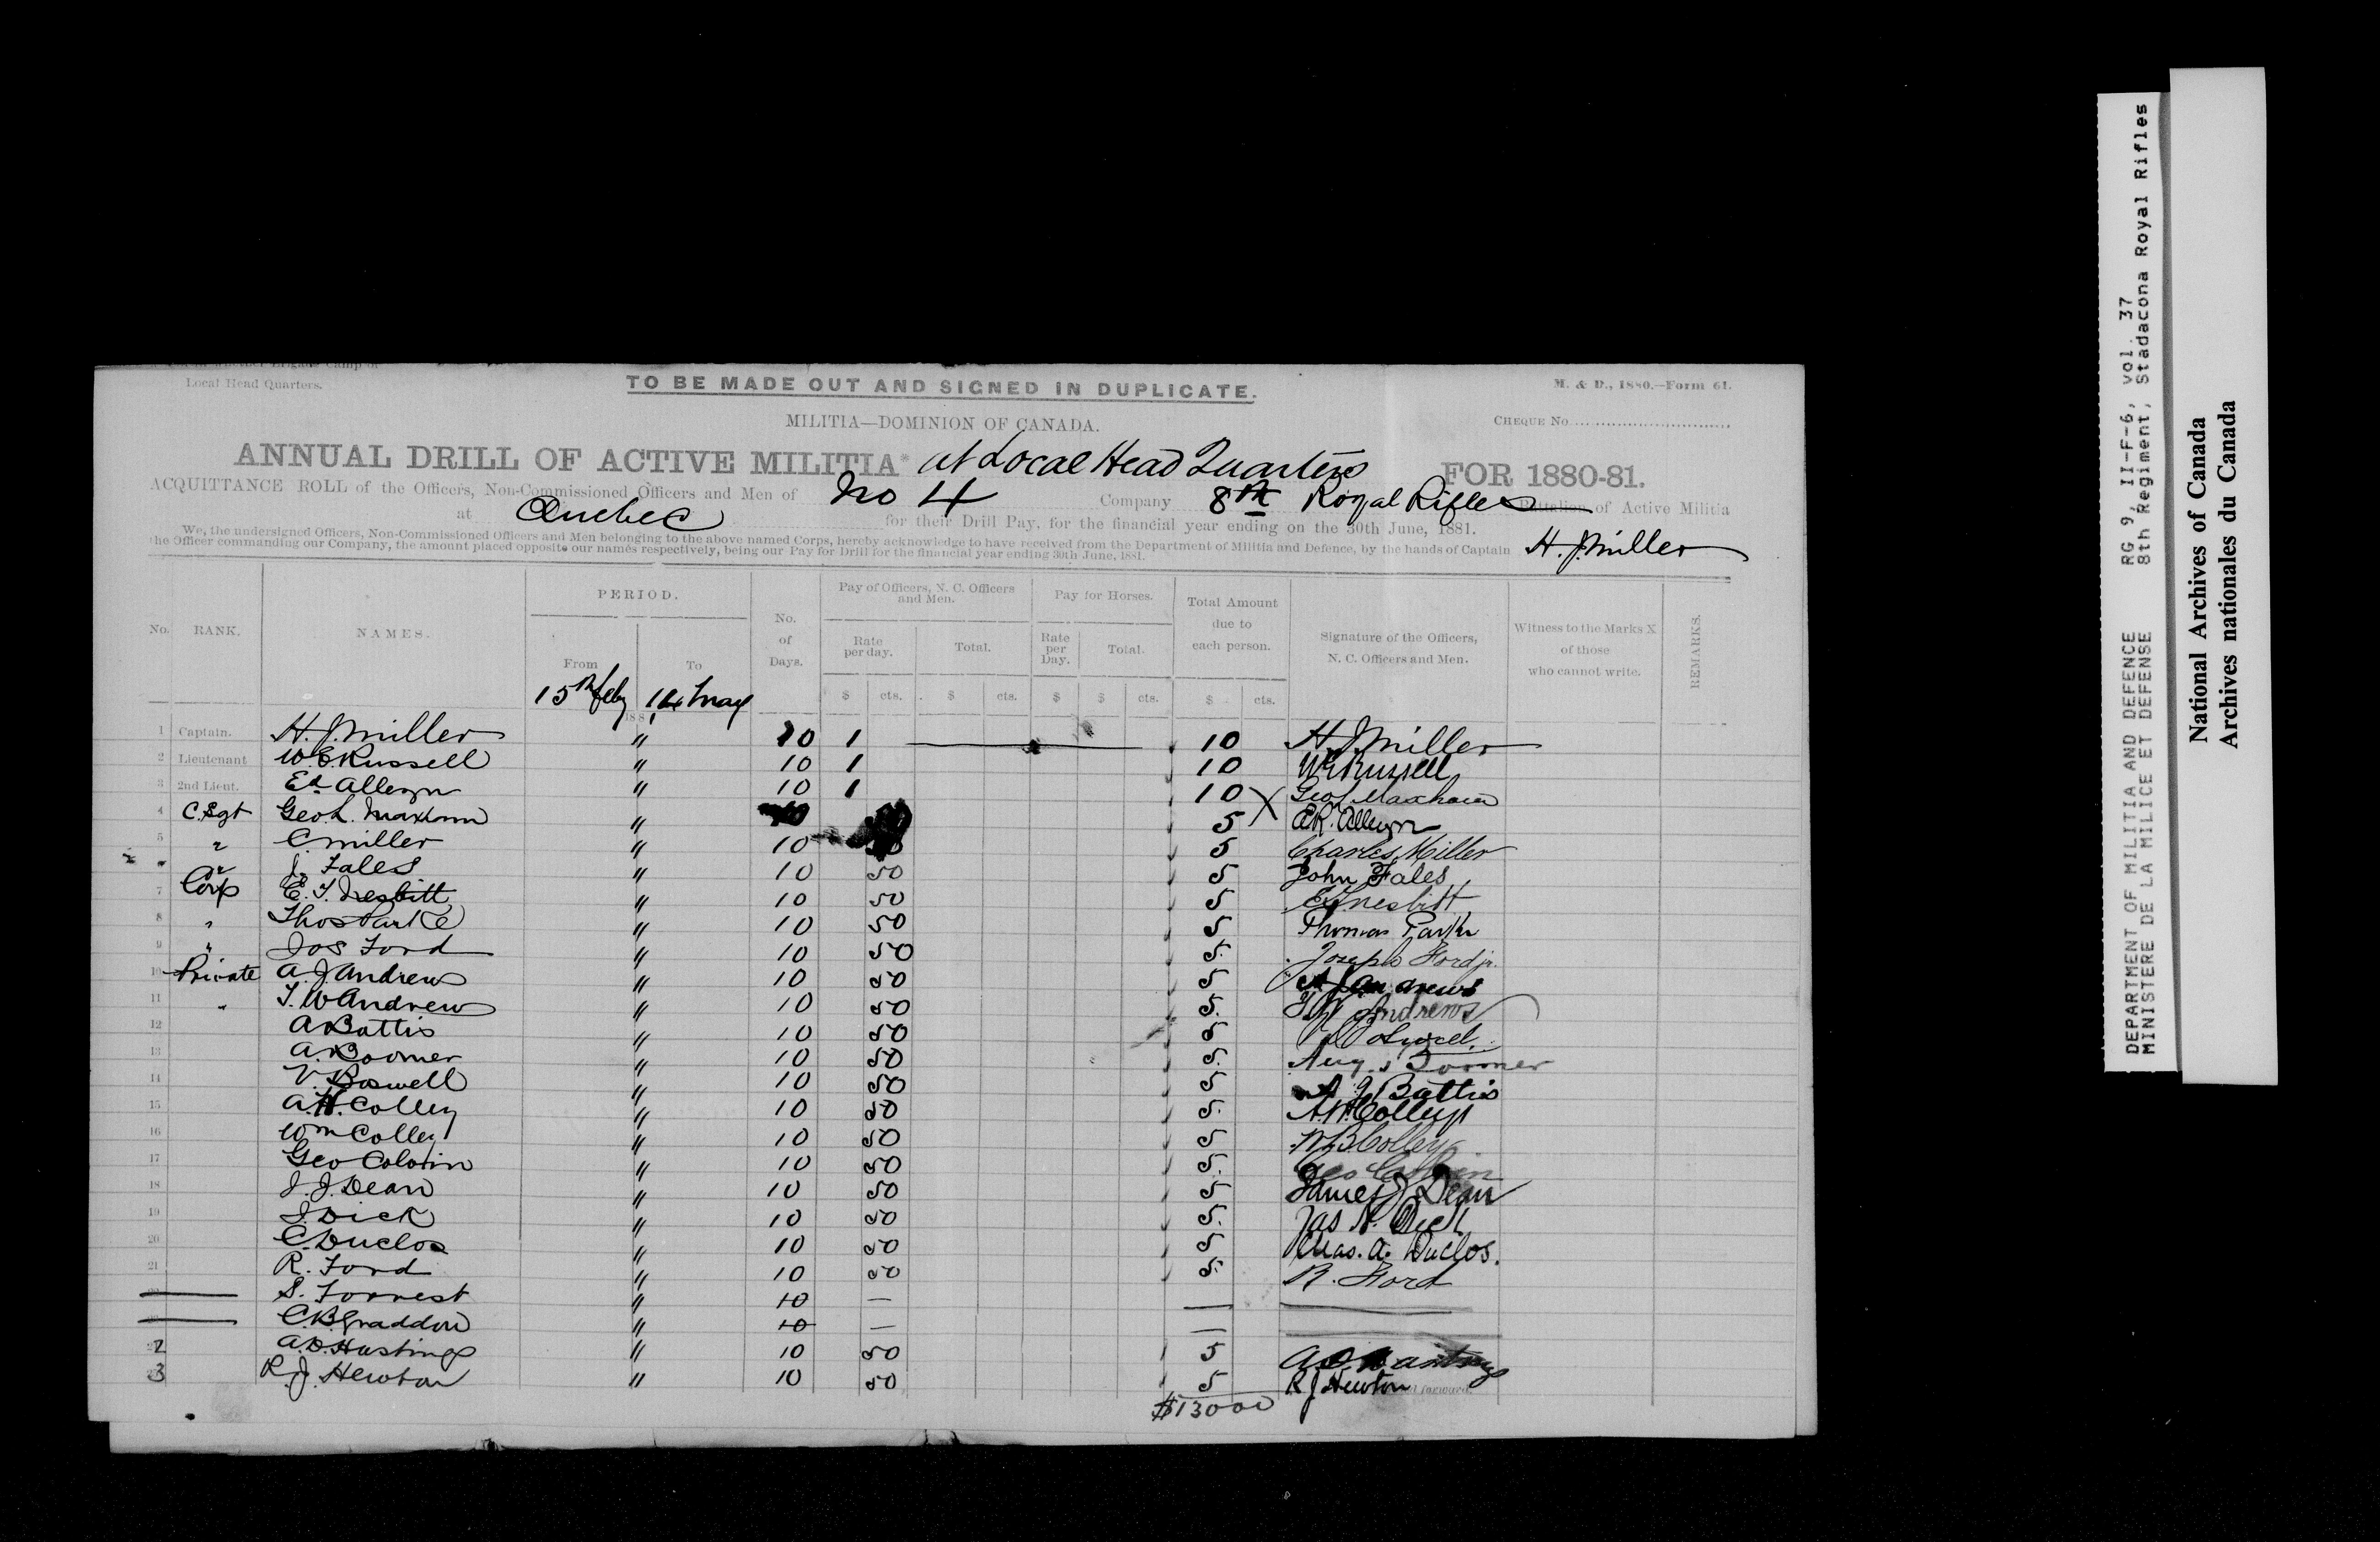 Local Head Quarters.
TO BE MADE OUT AND SIGNED IN DUPLICATE.
M. & D., 1880.—Form 61.
MILITIA—DOMINION OF CANADA.
CHEQUE No.
ANNUAL DRILL OF ACTIVE MILITIA* at Local Head Quarters FOR 1880-81.
ACQUITTANCE ROLL of the Officers, Non-Commissioned Officers and Men of No 4 Company 8th Royal Rifles Battalion of Active Militia
at Quebec for their Drill Pay, for the financial year ending on the 30th June, 1881.
We, the undersigned Officers, Non-Commissioned Officers and Men belonging to the above named Corps, hereby acknowledge to have received from the Department of Militia and Defence, by the hands of Captain H. J. Miller
the Officer commanding our Company, the amount placed opposite our names respectively, being our Pay for Drill for the financial year ending 30th June, 1881.
No. RANK. NAMES. PERIOD. No. of Days. Pay of Officers, N. C. Officers and Men. Pay for Horses. Total Amount due to each person. Signature of the Officers, N. C. Officers and Men. Witness to the Marks X of those who cannot write. REMARKS.
From To Rate per day. Total. Rate per Day. Total.
15th Feby 14 May
188
$ cts. $ cts. $ $ cts. $ cts.
1 Captain. H. J. Miller " 10 1 10 H. J. Miller
2 Lieutenant W. E. Russell " 10 1 10 W E Russell
3 2nd Lieut. Ed Alleyn " 10 1 10 X Geo L Maxham
4 C. Sgt Geo. L. Maxham " 5 X E.R. Alleyn
5 " C Miller " 10 50 5 Charles Miller
" J. Fales " 10 50 5 John Fales
7 Corp E. T. Nesbitt " 10 50 5 E T Nesbitt
8 " Thos Parke " 10 50 5 Thomas Parke
9 " Jos Ford " 10 50 5. Joseph Ford jr.
10 Private A. J. Andrews " 10 50 5 A J Andrews
11 " T. W Andrews " 10 50 5. T W Andrews
12 A Battis " 10 50 5 V Boswell
13 A. Boomer " 10 50 5. Aug. s Boomer
14 V. Boswell " 10 50 5 A J Battis
15 A. H. Colley " 10 50 5. A. H. Colley
16 Wm Colley " 10 50 5 W B Colley
17 Geo Colvin " 10 50 5. Geo Colvin
18 J. J. Dean " 10 50 5 James J Dean
19 J. Dick " 10 50 5. Jas N. Dick
20 C. Duclos " 10 50 5 Chas. A. Duclos.
21 R. Ford " 10 50 5. R. Ford
S. Forrest " 10 —
C. B. Graddon " 10 —
2 A. D. Hastings " 10 50 5 A D Hastings
3 R. J. Hewton " 10 50 5 R J Hewton
forward.
$130 00
DEPARTMENT OF MILITIA AND DEFENCE RG 9, II-F-6, vol. 37
MINISTERE DE LA MILICE ET DEFENSE 8th Regiment, Stadacona Royal Rifles
National Archives of Canada
Archives nationales du Canada